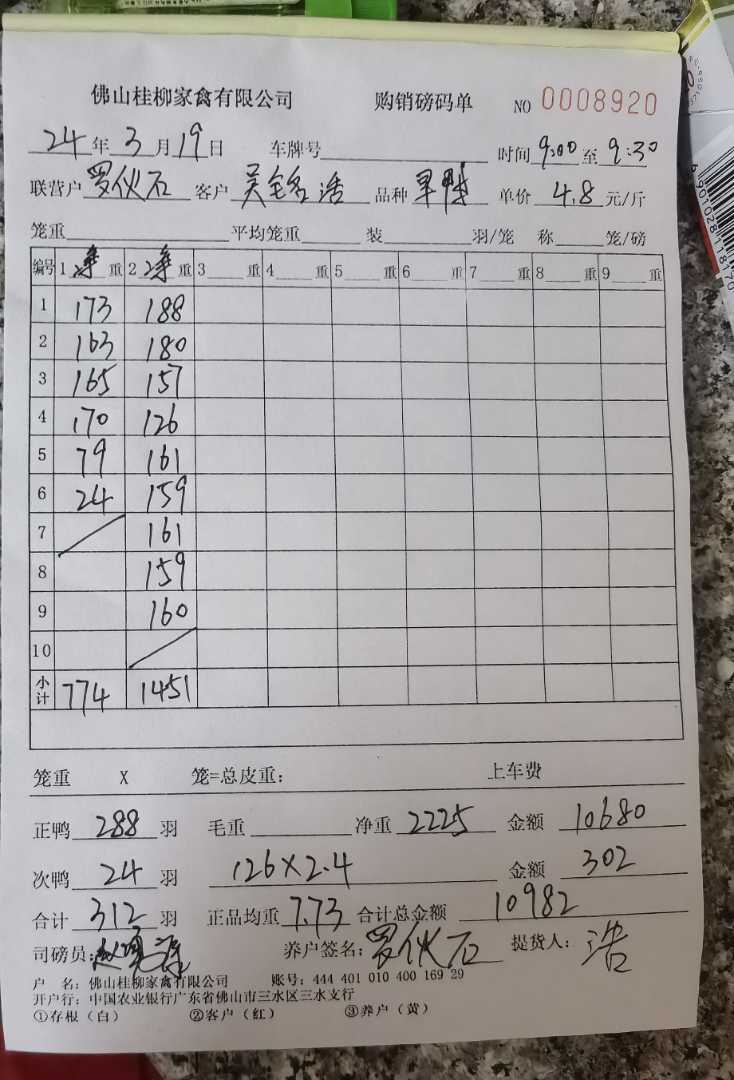 佛山桂柳家禽有限公司 购销磅码单 NO 0008920
24年3月19日 车牌号 时间9:00至9:30
联营户罗伙石 客户 品种旱鸭 单价4.8元/斤
笼重 平均笼重 装 羽/笼 称 笼/磅
编号 1净重 2净重 3 重 4 重 5 重 6 重 7 重 8 重 9 重
1 173 188
2 163 180
3 165 157
4 170 126
5 79 161
6 24 159
7 161
8 159
9 160
10
小计 774 1451
笼重 X 笼=总皮重: 上车费
正鸭288羽 毛重 净重2225 金额10680
次鸭24羽 126×2.4 金额302
合计312羽 正品均重7.73 合计总金额10982
司磅员: 养户签名:罗伙石 提货人:浩
户 名:佛山桂柳家禽有限公司 账号:444 401 010 400 169 29
开户行:中国农业银行广东省佛山市三水区三水支行
①存根(白) ②客户(红) ③养户(黄)
6 901028 118170